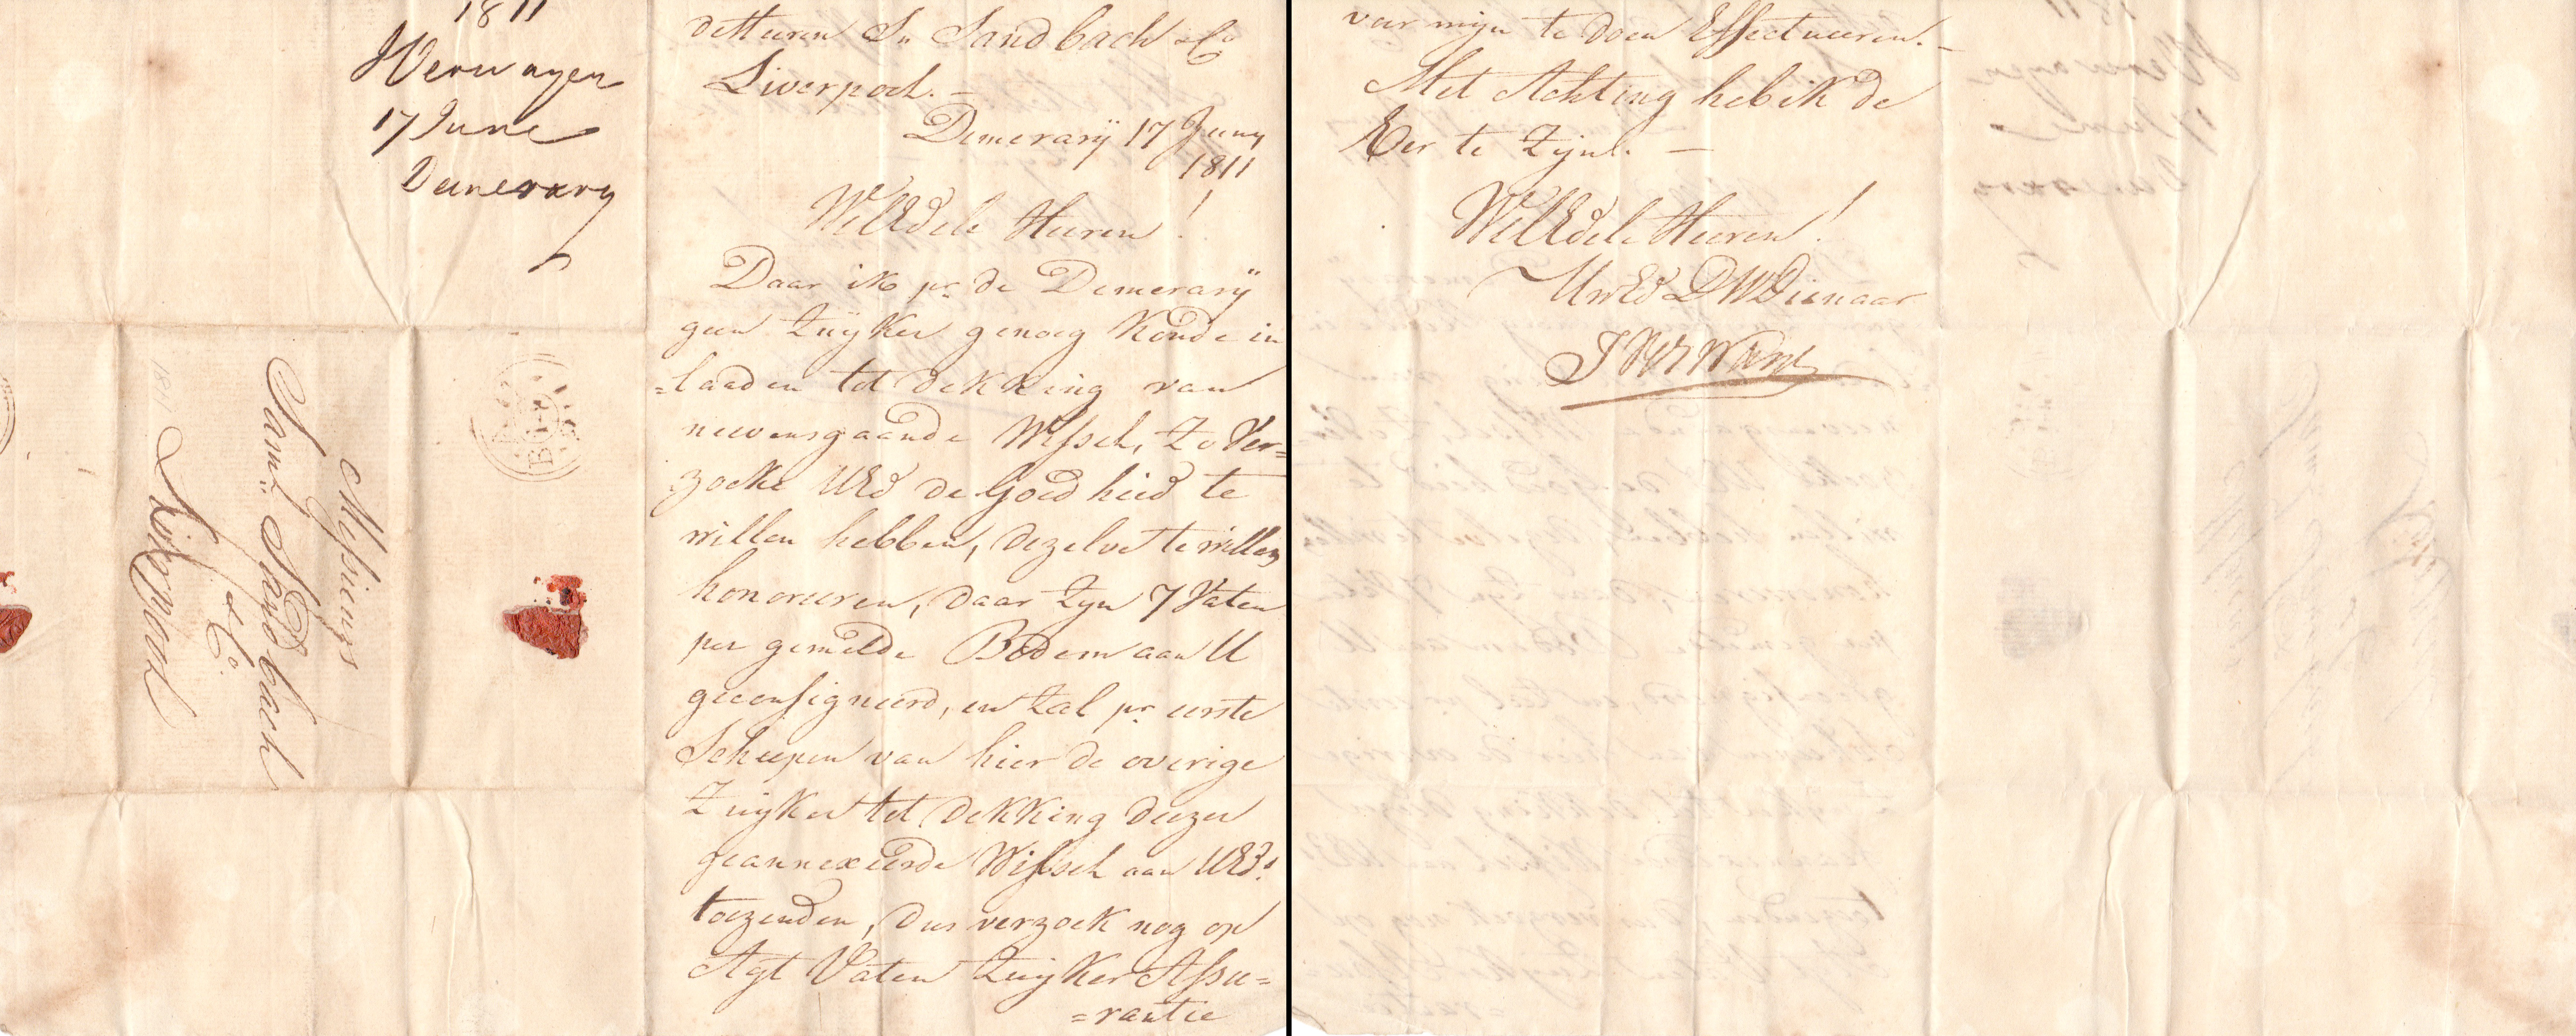 1811
JVerwayen
17 June
Demerary
Messieurs
Sam.l Sandbach
& Co.
Liverpool
1811
de Heeren S.n Sandbach & Co
Liverpool. —
Demerarÿ 17 Juny
1811
WelEdele Heeren!
Daar ik pr. de Demerarÿ
geen Zuÿker genoeg Konde in
=laaden tot dekking van
nevensgaande Wissel, Zo Ver=
zoeke UEd de Goedheid te
willen hebben, dezelve te willen
honoreeren, daar Zyn 7 Vaten
per gemelde Bodem aan U
geconsigneerd, en Zal pr. eerste
Scheepen van hier de overige
Zuÿker tot dekking deezer
geannexeerde Wissel aan UEd.
toezenden, dus verzoek nog op
Agt Vaten Zuyker Assu=
=rantie
voor mijn te doen Effectueeren. —
Met Achting heb ik de
Eer te Zijn. —
WelEdele Heeren!
UwEd DWDienaar